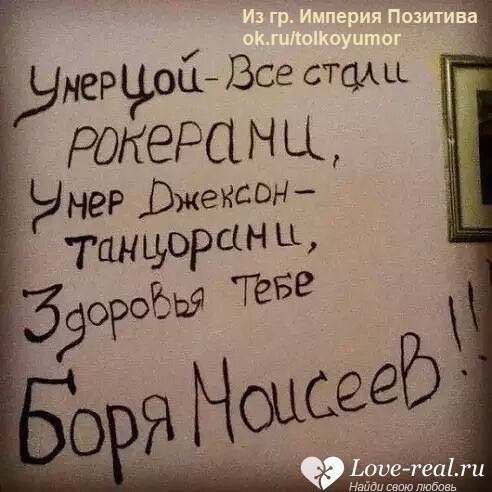 Из гр. Империя Позитива
ok.ru/tolkoyumor
Умер Цой - Все стали
рокерами,
Умер Джексон -
танцорами,
Здоровья Тебе
Боря Моисеев!!
Love-real.ru
Найди свою любовь